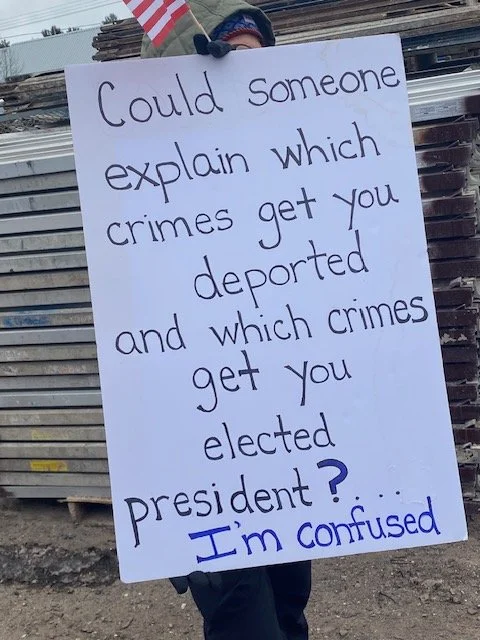 Could someone
explain which
crimes get you
deported
and which crimes
get you
elected
president?...
I'm confused